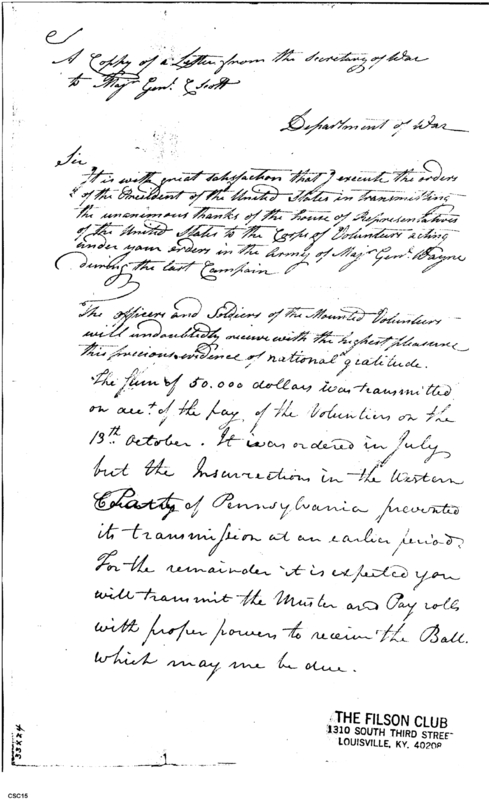 A Coppy of a Letter from the Secretary of War
to Majr Genl. C Scott
Department of War
Sir
It is with great satisfaction that I execute the orders
of the President of the United States in transmitting
the unanimous thanks of the house of Representatives
of the United States to the Corps of Volunteers acting
under your orders in the Army of Majr Genl. Wayne
during the last Campain
The officers and Soldiers of the Mounted Volunteers
will undoubtedly receive with the highest pleasure
this precious evidence of national gratitude.
The Sum of 50.000 dollars was transmitted
on acct. of the pay of the Voluntiers on the
13th October. It was ordered in July
but the Insurrections in the Western
of Pennsylvania prevented
its transmission at an earlier period.
For the remainder it is expected you
will transmit the Muster and Pay rolls
with proper powers to receive the Ball.
which may me be due.
THE FILSON CLUB
1310 SOUTH THIRD STREET
LOUISVILLE, KY. 40208
33X24
CSC15